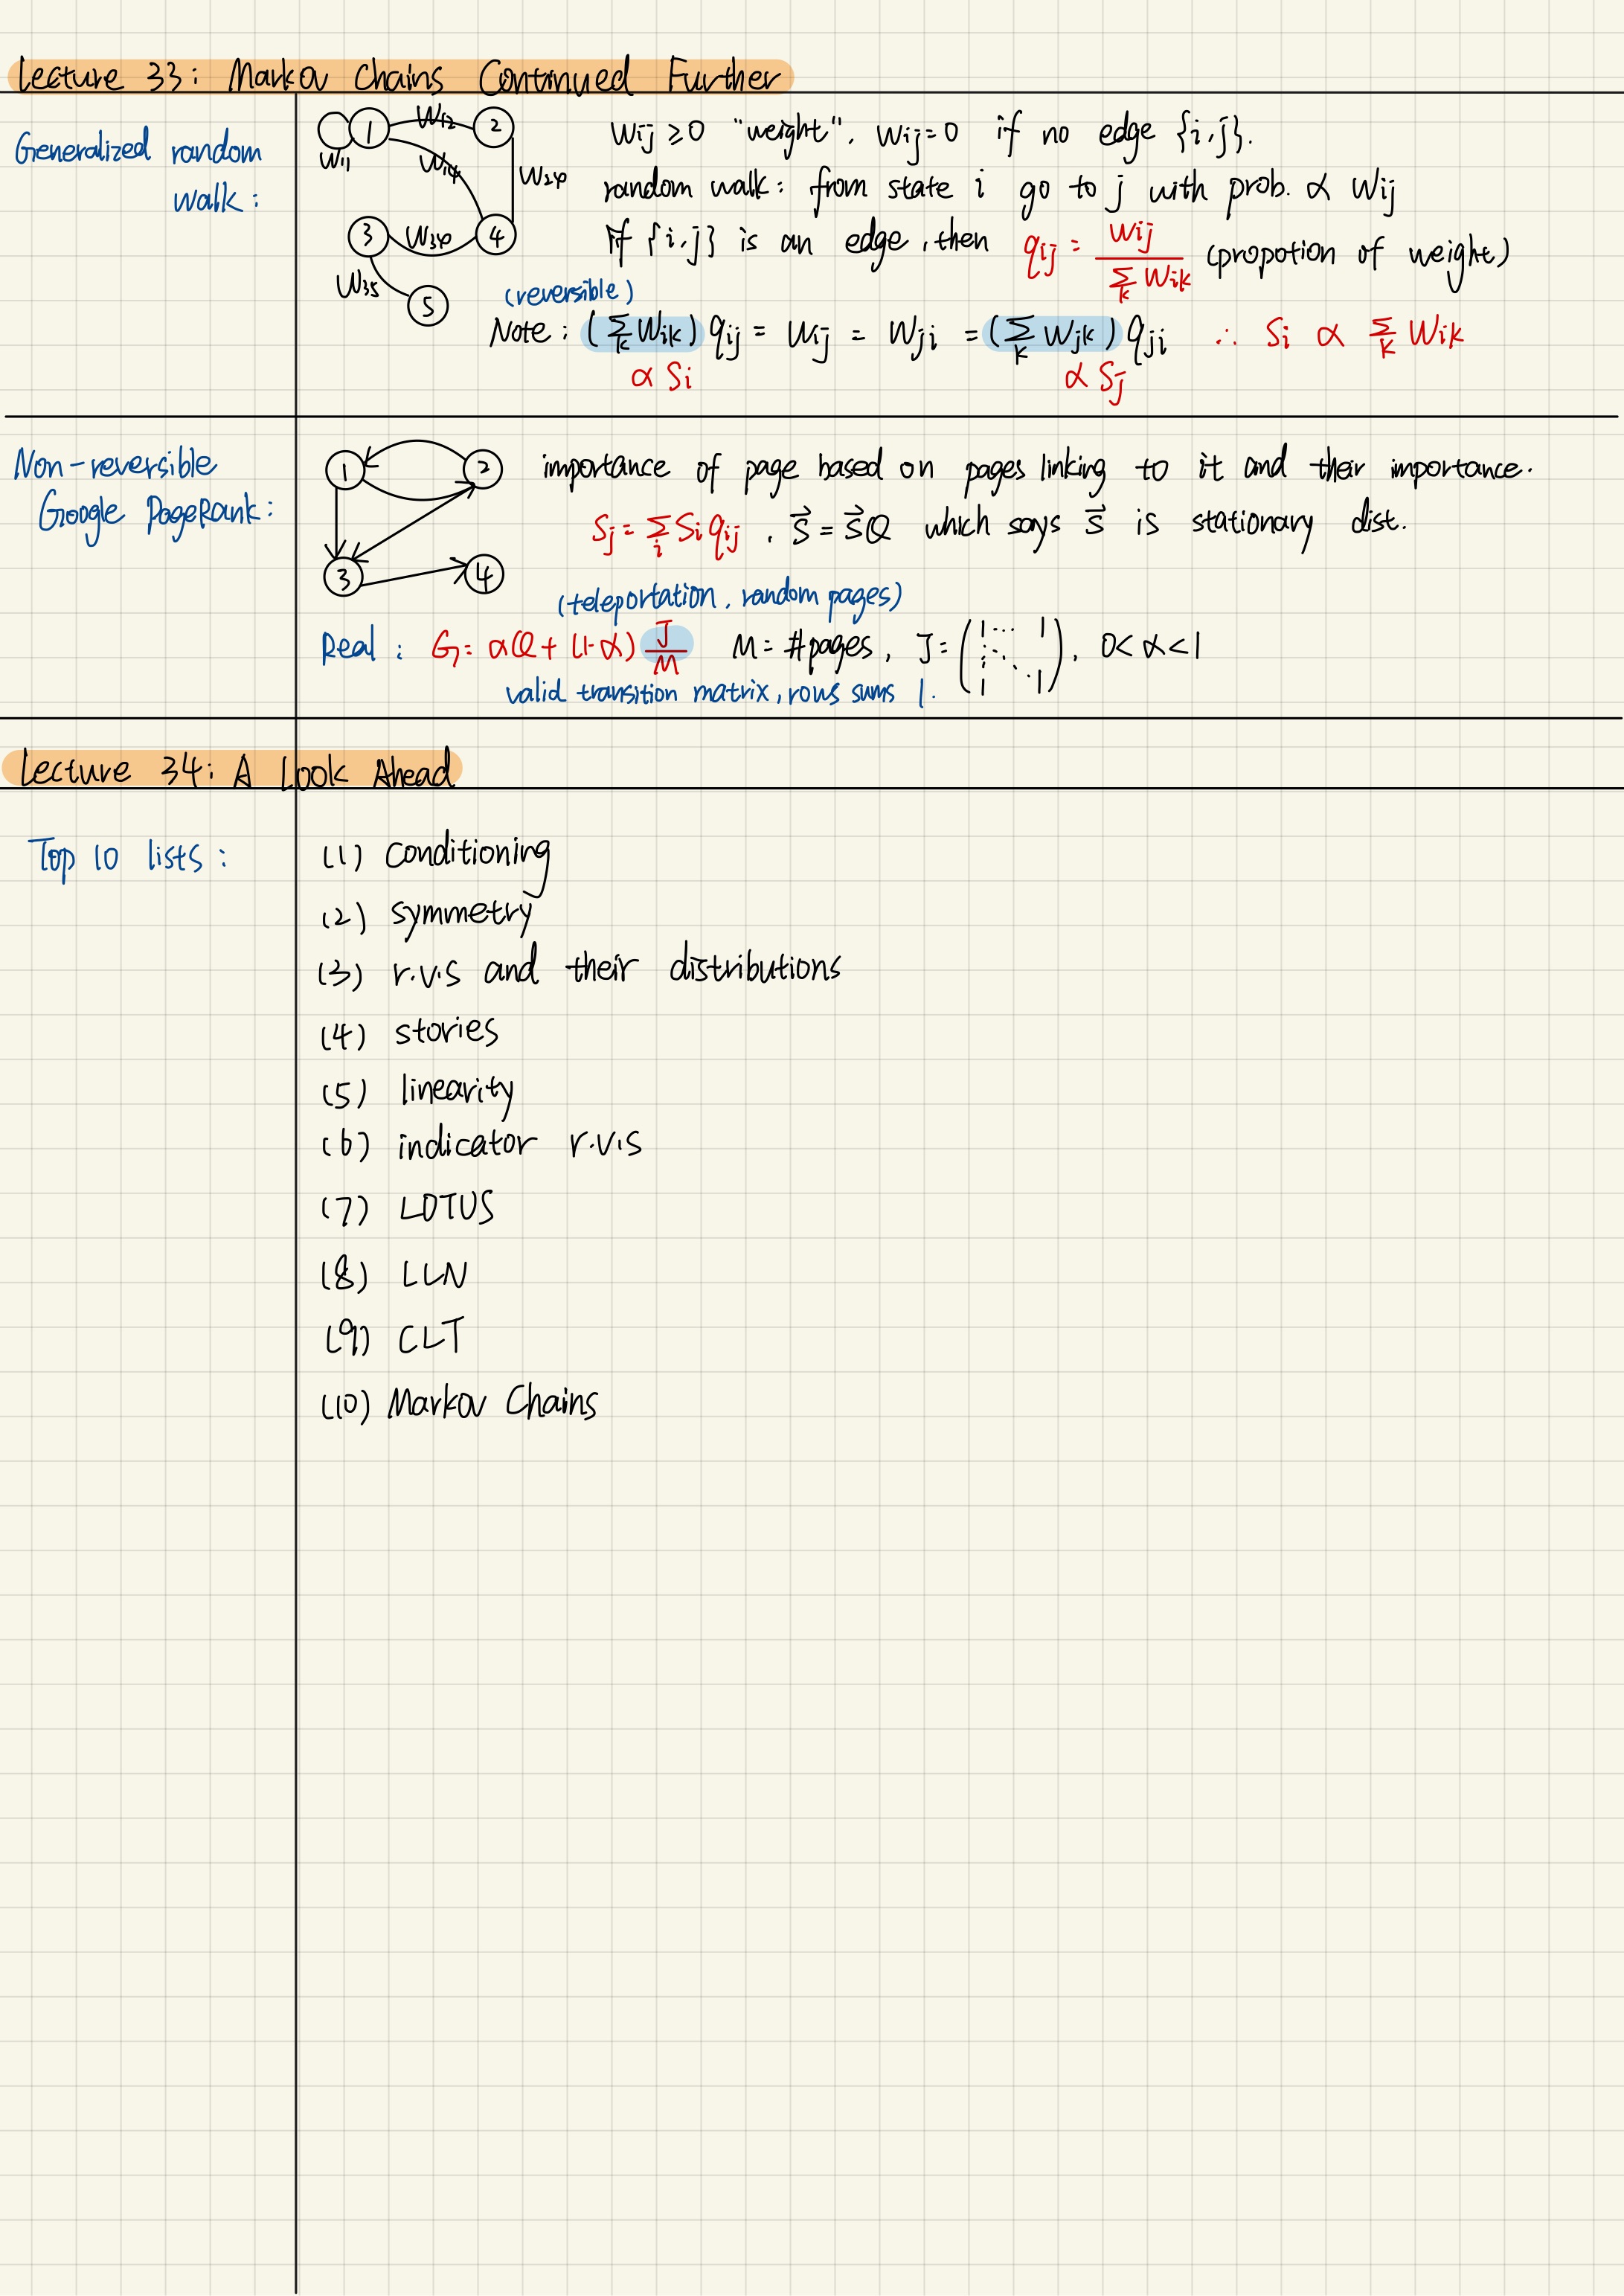 Lecture 33: Markov Chains Continued Further
Generalized random
walk:
1
2
3
4
5
W11
W12
W14
W24
W34
W35
Wij ≥ 0 "weight", Wij = 0 if no edge {i,j}.
random walk: from state i go to j with prob. ∝ Wij
if {i,j} is an edge, then qij = Wij / Σk Wik (propotion of weight)
(reversible)
Note: (Σk Wik) qij = Wij = Wji = (Σk Wjk) qji ∴ Si ∝ Σk Wik
∝ Si ∝ Sj
Non-reversible
Google PageRank:
1
2
3
4
importance of page based on pages linking to it and their importance.
Sj = Σi Si qij , s⃗ = s⃗Q which says s⃗ is stationary dist.
(teleportation, random pages)
Real: G = αQ + (1-α) J/M M = #pages, J = (1 ... 1 ⋮ ⋱ 1 1), 0 < α < 1
valid transition matrix, rows sums 1.
Lecture 34: A Look Ahead
Top 10 lists:
(1) conditioning
(2) symmetry
(3) r.v.s and their distributions
(4) stories
(5) linearity
(6) indicator r.v.s
(7) LOTUS
(8) LLN
(9) CLT
(10) Markov Chains